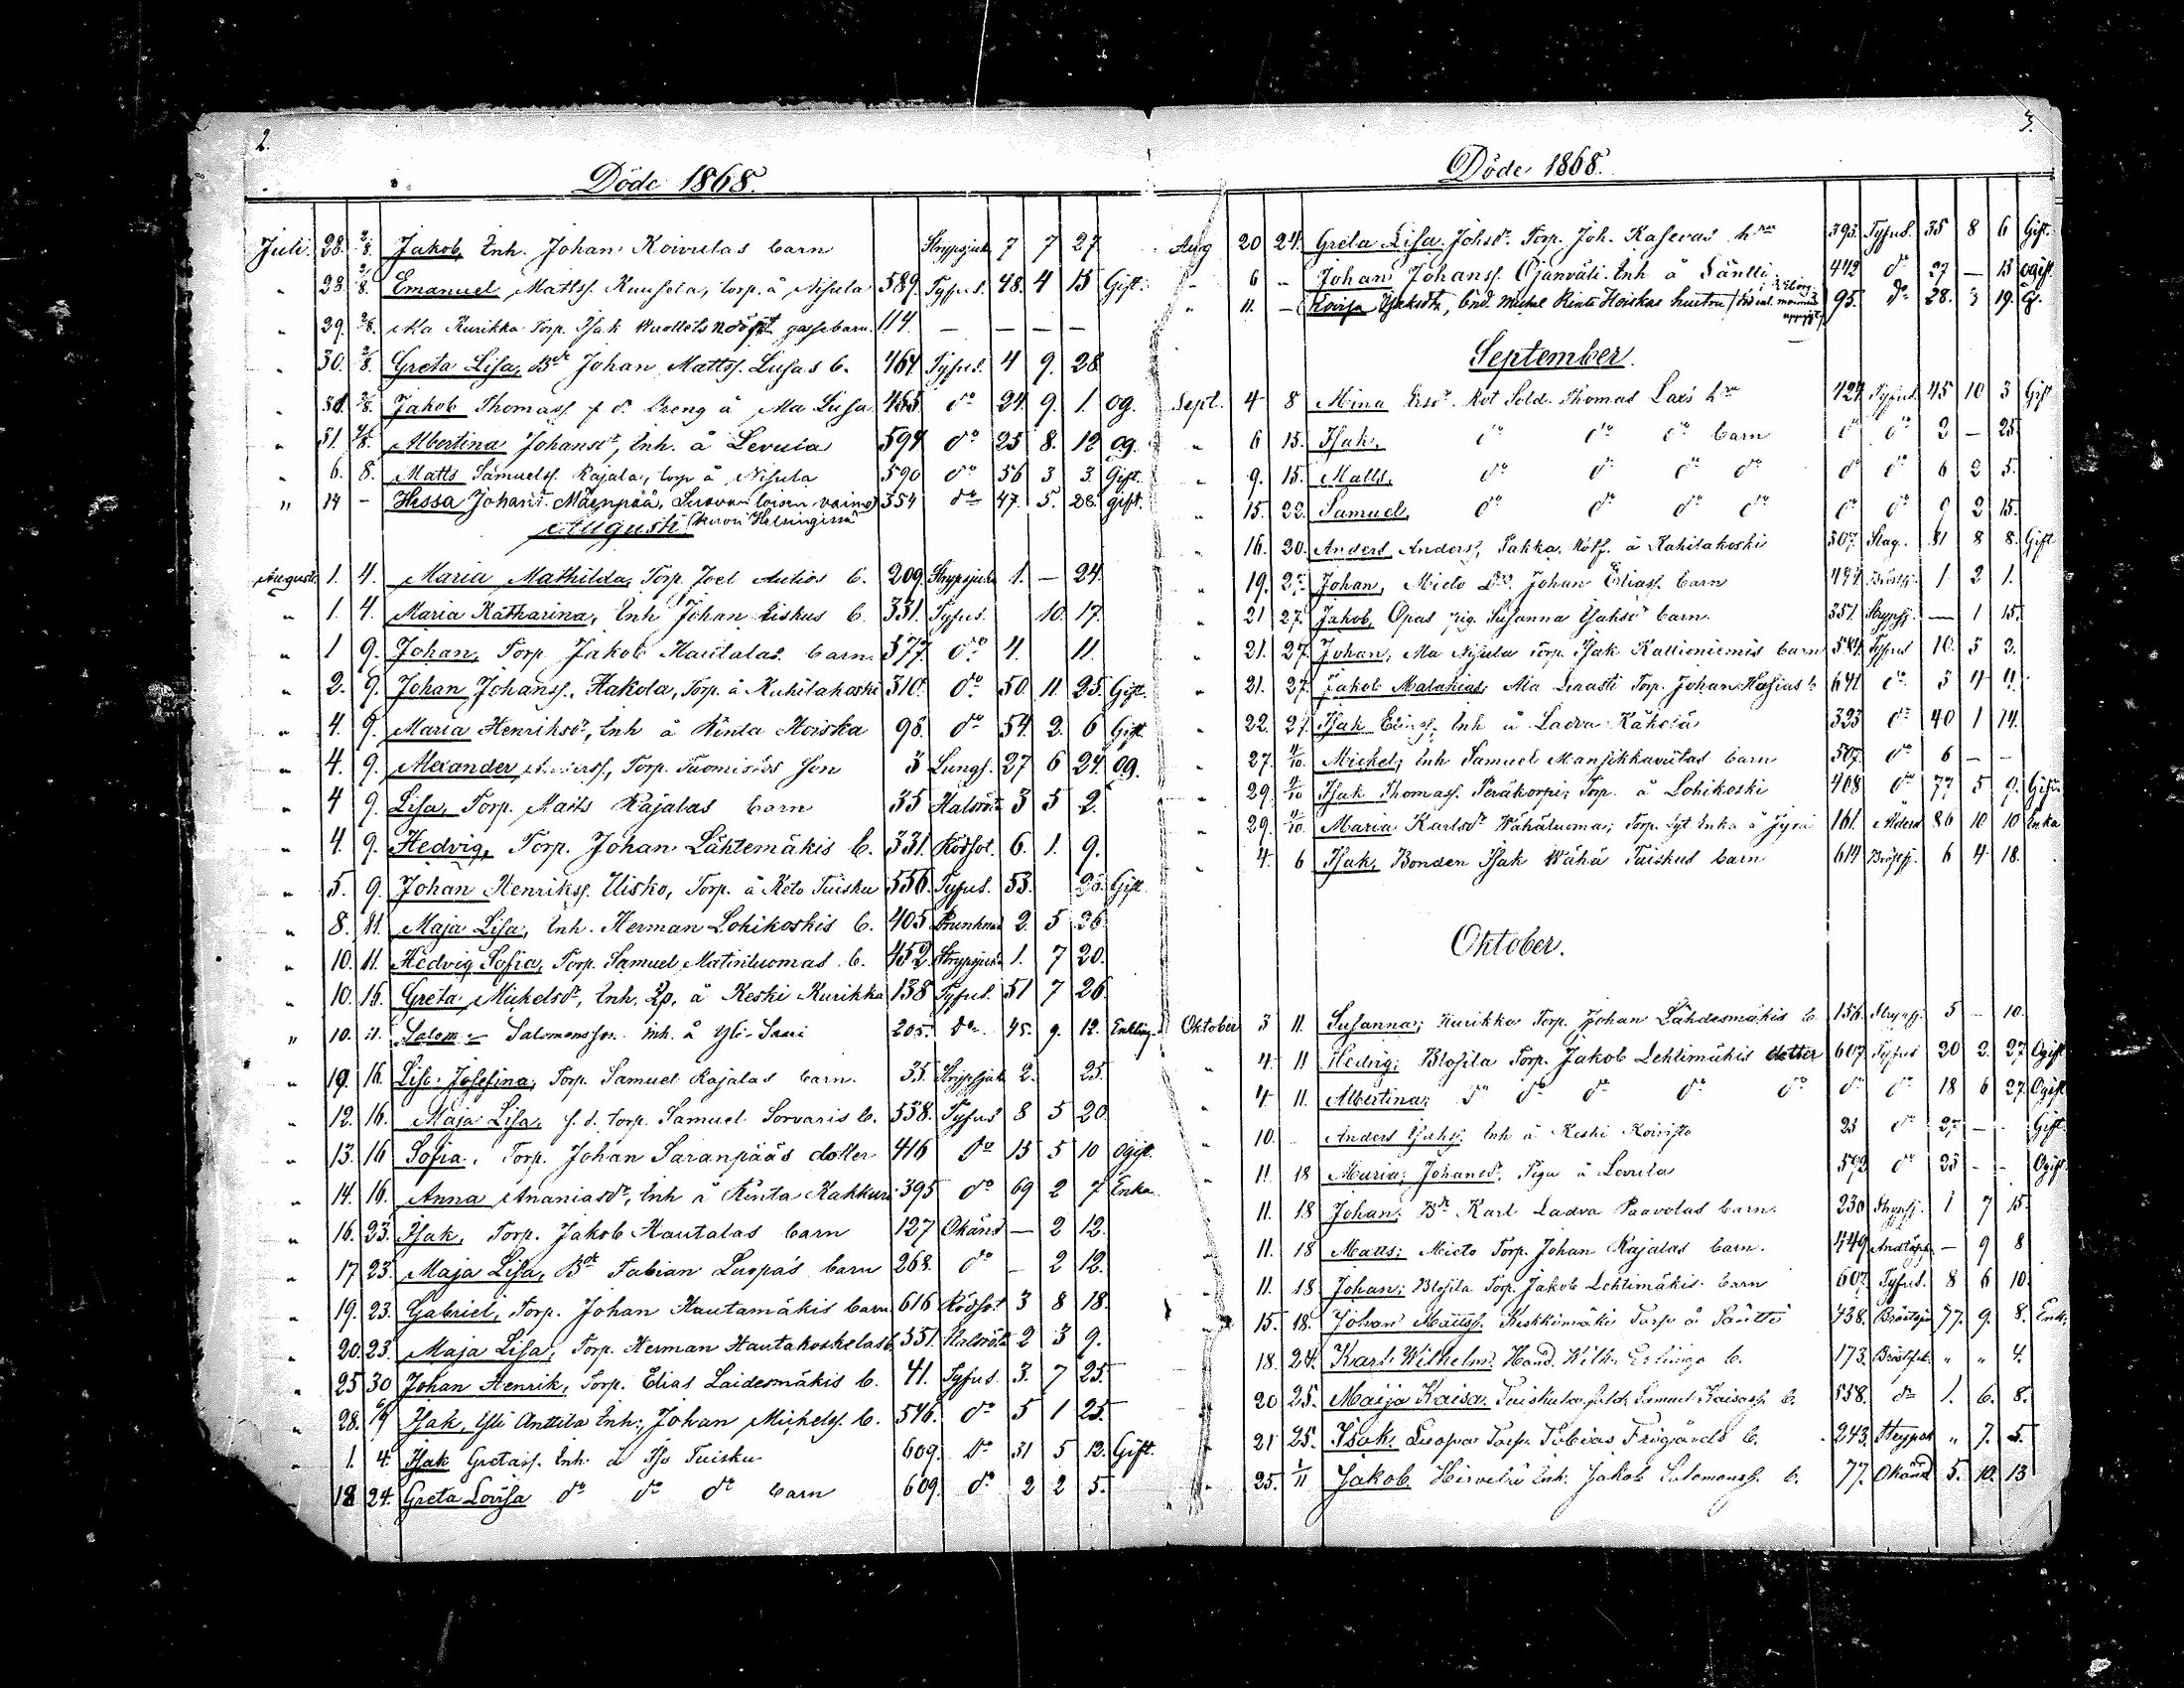 2.
Döde 1868.
Juli 28. 2/8. Jakob, Inh. Johan Koivulas barn Strypsjuk 7 7 27
" 23. 2/8. Emanuel Mattss. Knusela, torp. à Nisula 589. Tyfus. 48. 4 15 Gift.
" 29. 2/8. Ala Kurikka Torp. Isak Wuollets nödöpt gossebarn. 114. — — — —
" 30. 2/8. Greta Lisa, Bde Johan Mattss. Lusas b. 464 Tyfus. 4 9. 28
" 31. 2/8. Jakob Thomass. f. d. dreng à Ala Lusa 465 do 24. 9. 1. og.
" 31. 2/8. Albertina Johansdr, Inh. à Levula 594 do 25 8. 12 og.
" 6. 8. Matts Samuelss. Rajala, torp à Nisula 590 do 56 3 3. Gift.
" 14 - Hessa Johansdr. Mäenpää, loisen vaimo 354 do 47. 5. 28. gift.
Augusti. Helsingissä
Augusti 1. 4. Maria Mathilda, Torp. Joel Autios b. 209. Strypsjuka 1. — 24.
" 1. 4. Maria Katharina, Inh Johan Liskus b. 331. Tyfus. 10. 17.
" 1 9. Johan, Torp. Jakob Hautalas barn. 577. do 4. 11.
" 2. 9. Johan Johanss. Hakola, Torp. à Kuhilakoski 310. do 50 11 25. Gift.
" 4. 9. Maria Henriksdr, Inh à Rinta Koiska 98. do 54. 2. 6 Gift
" 4. 9. Alexander Anderss, Torp. Tuomistos son 3 Lungs. 27 6 24. og.
" 4 9. Lisa, Torp. Matts Rajalas barn 35 Halsröta 3 5 2.
" 4. 9. Hedvig, Torp. Johan Lähtemäkis b. 331. Rödsot. 6. 1. 9.
" 5. 9. Johan Henrikss. Uisko, Torp. à Keto Tuisku 556. Tyfus. 53. 25. Gift.
" 8. 11. Maja Lisa, Inh. Herman Lohikoskis b. 405 2. 5 26
" 10. 11. Hedvig Sofia, Torp. Samuel Matinluomas b. 452. Strypsjuka 1. 7 20.
" 10. 16. Greta Mickelsdr, Inh. à Keski Kurikka 138 Tyfus. 51 7 26.
" 10. 11. Salom. Salomonsson. Inh. à Yli-Saari 205. do. 45. 9. 12. Enkling.
" 19. 16. Lisa Josefina, Torp. Samuel Rajalas barn. 35. Strypsjuk 2. 25.
" 12. 16. Maja Lisa, f. d. torp. Samuel Sorvaris b. 558. Tyfus 8 5 20.
" 13. 16 Sofia, Torp. Johan Saranpääs dotter 416 do 15 5 10 Ogift.
" 14. 16. Anna Ananiasdr, Inh à Rinta Kahkuri 395 do 69 2 7 Enka
" 16. 23. Isak, Torp. Jakob Hautalas barn 127 Okänd — 2 12.
" 17 23. Maja Lisa, Bde Fabian Luopas barn 268. do - 2 12.
" 19. 23. Gabriel, Torp. Johan Hautamäkis barn 616 Rödsot 3 8 18.
" 20. 23. Maja Lisa, Torp. Herman Hautakoskelas b. 551. Halsröta 2 3 9.
" 25 30 Johan Henrik, Torp. Elias Laidesmäkis b. 41. Tyfus. 3. 7 25.
" 28. 6/9 Isak, Yli Anttila Inh; Johan Mickelss. b. 546. do 5 1 25.
1. 4. Isak Gretass. Inh. à Iso Tuisku 609. do 31 5 12. Gift.
18 24. Greta Lovisa do do do barn 609. do 2 2 5.
3.
Döde 1868.
Aug 20 24. Greta Lisa Johsdr. Torp. Joh. Kasevas hru 393. Tyfus. 35 8 6 Gift.
" 6 " Johan Johanss. Ojanväli. Inh à Säntti 442 do 27 — 13 ogift.
" 11. — Lovisa Isaksdtr, bnd. Michel Rinta Hoiskas hustru 95. do 28. 3 19. G.
September.
Sept. 4 8 Mina Rot Sold. Thomas Lax's hru 424. Tyfus. 45 10 3 Gift
" 6 15. Isak, do do do barn do do 2 — 25
" 9. 15. Matts, do do do do do do 6 2 5.
" 15. 22. Samuel, do do do do do do 9 2 15.
" 16. 20. Anders Anders, Pakka. à Kahilakoski 307. Slag. 81 8 8. Gift
" 19. Johan, Mieto Johan Eliass. barn 474 1. 2 1.
" 21 27. Jakob, Opas pig. Susanna Isaksdr barn. 351 Strypsj. — 1 15.
" 21. 27. Johan, Ala Nisula Torp. Isak Kallioniemis barn 584. Tyfus 10. 5 2.
" 21. 27. Jakob Malakias; Ala Torp. Johan b 641 do 3 4 4.
" 22. 27. Isak Eliass; Inh à Ladva Käkelä 323 do 40 1 14.
" 27. 4/10. Mickel; Inh Samuel Mansikkaviitas barn 507. do 6 — —
" 29. 4/10 Isak Thomass. Peräkorpi; Torp. à Lohikoski 408 do 77 5 9. Gift
" 29. 4/10. Maria Karlsdr Wähäluoma; Torp. Syt Enka à Jyrä 161. Ålderd 86 10 10 Enka
" 4. 6 Isak, Bonden Isak Wähä Tuiskus barn 614 Bröstsj. 6 4 18.
Oktober.
Oktober 3 11. Susanna; Kurikka Torp. Johan Lähdesmäkis b 156. Strypsj. 5 - 10.
" 4. 11 Hedvig; Blosila Torp. Jakob Lehtimäkis dotter 607 Tyfus 20 2 27 Ogift
" 4. 11. Albertina; do do do do do do do 18 6 27. Ogift
" 10. - Anders Isaks. Inh à Keski Koivisto 25 do - - Gift.
" 11 18 Maria; Johansdr. Piga à Levula 592 do 25 - - Ogift
" 11. 18 Johan; Bde Karl Ladva Paavolas barn. 230 Strypsj. 1 7 15.
" 11. 18 Matts; Mieto Torp. Johan Rajalas barn. 449 — 9 8
" 11. 18 Johan; Blosila Torp. Jakob Lehtimäkis barn 607. Tyfus. 8 6 10.
" 15. 18. Johan Mattss. Keskkimäki Torp. à Säntti 438. 77. 9. 8. Enk.
18. 24. Karl Wilhelm. b. 173. " " 4.
20 25. Maija Kaisa. b. 558. do 1. 6. 8.
21 25. Isak. Luopa Torp. Tobias Frigårds b. 243. Strypsk " 7. 5.
25. 1/11 Jakob. Hirvelä Inh. Jakob Salomonss. b. 77. Okänd 5. 10. 13